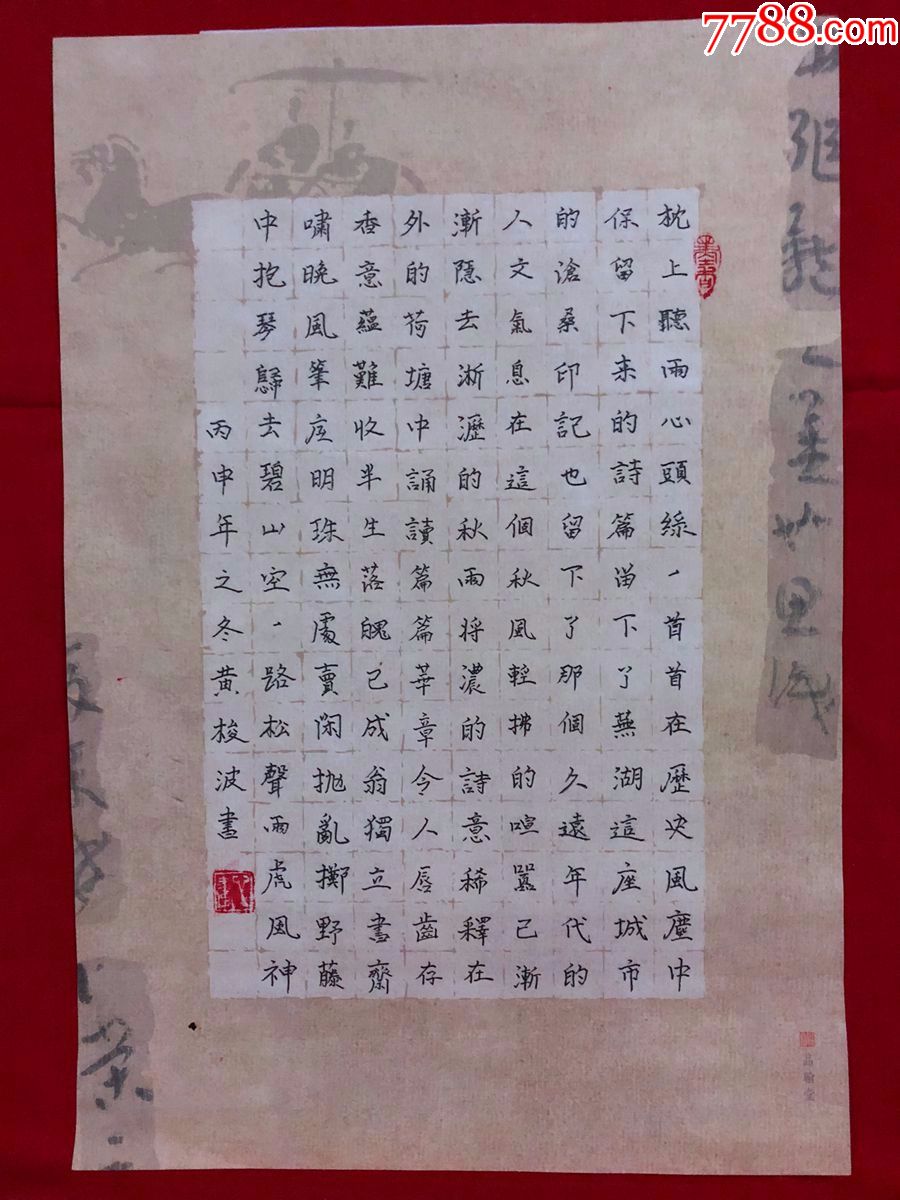 7788.com
枕上聽雨心頭綠一首首在歷史風塵中
保留下来的詩篇留下了蕪湖這座城市
的滄桑印記也留下了那個久遠年代的
人文氣息在這個秋風輕拂的喧囂已漸
漸隱去淅瀝的秋雨将濃的詩意稀釋在
外的荷塘中誦讀篇篇華章令人唇齒存
香意蘊難收半生落魄已成翁獨立書齋
嘯晚風筆底明珠無處賣閑抛亂擲野藤
中抱琴歸去碧山空一路松聲雨處風神
丙申年之冬黄梭波書
品翰堂